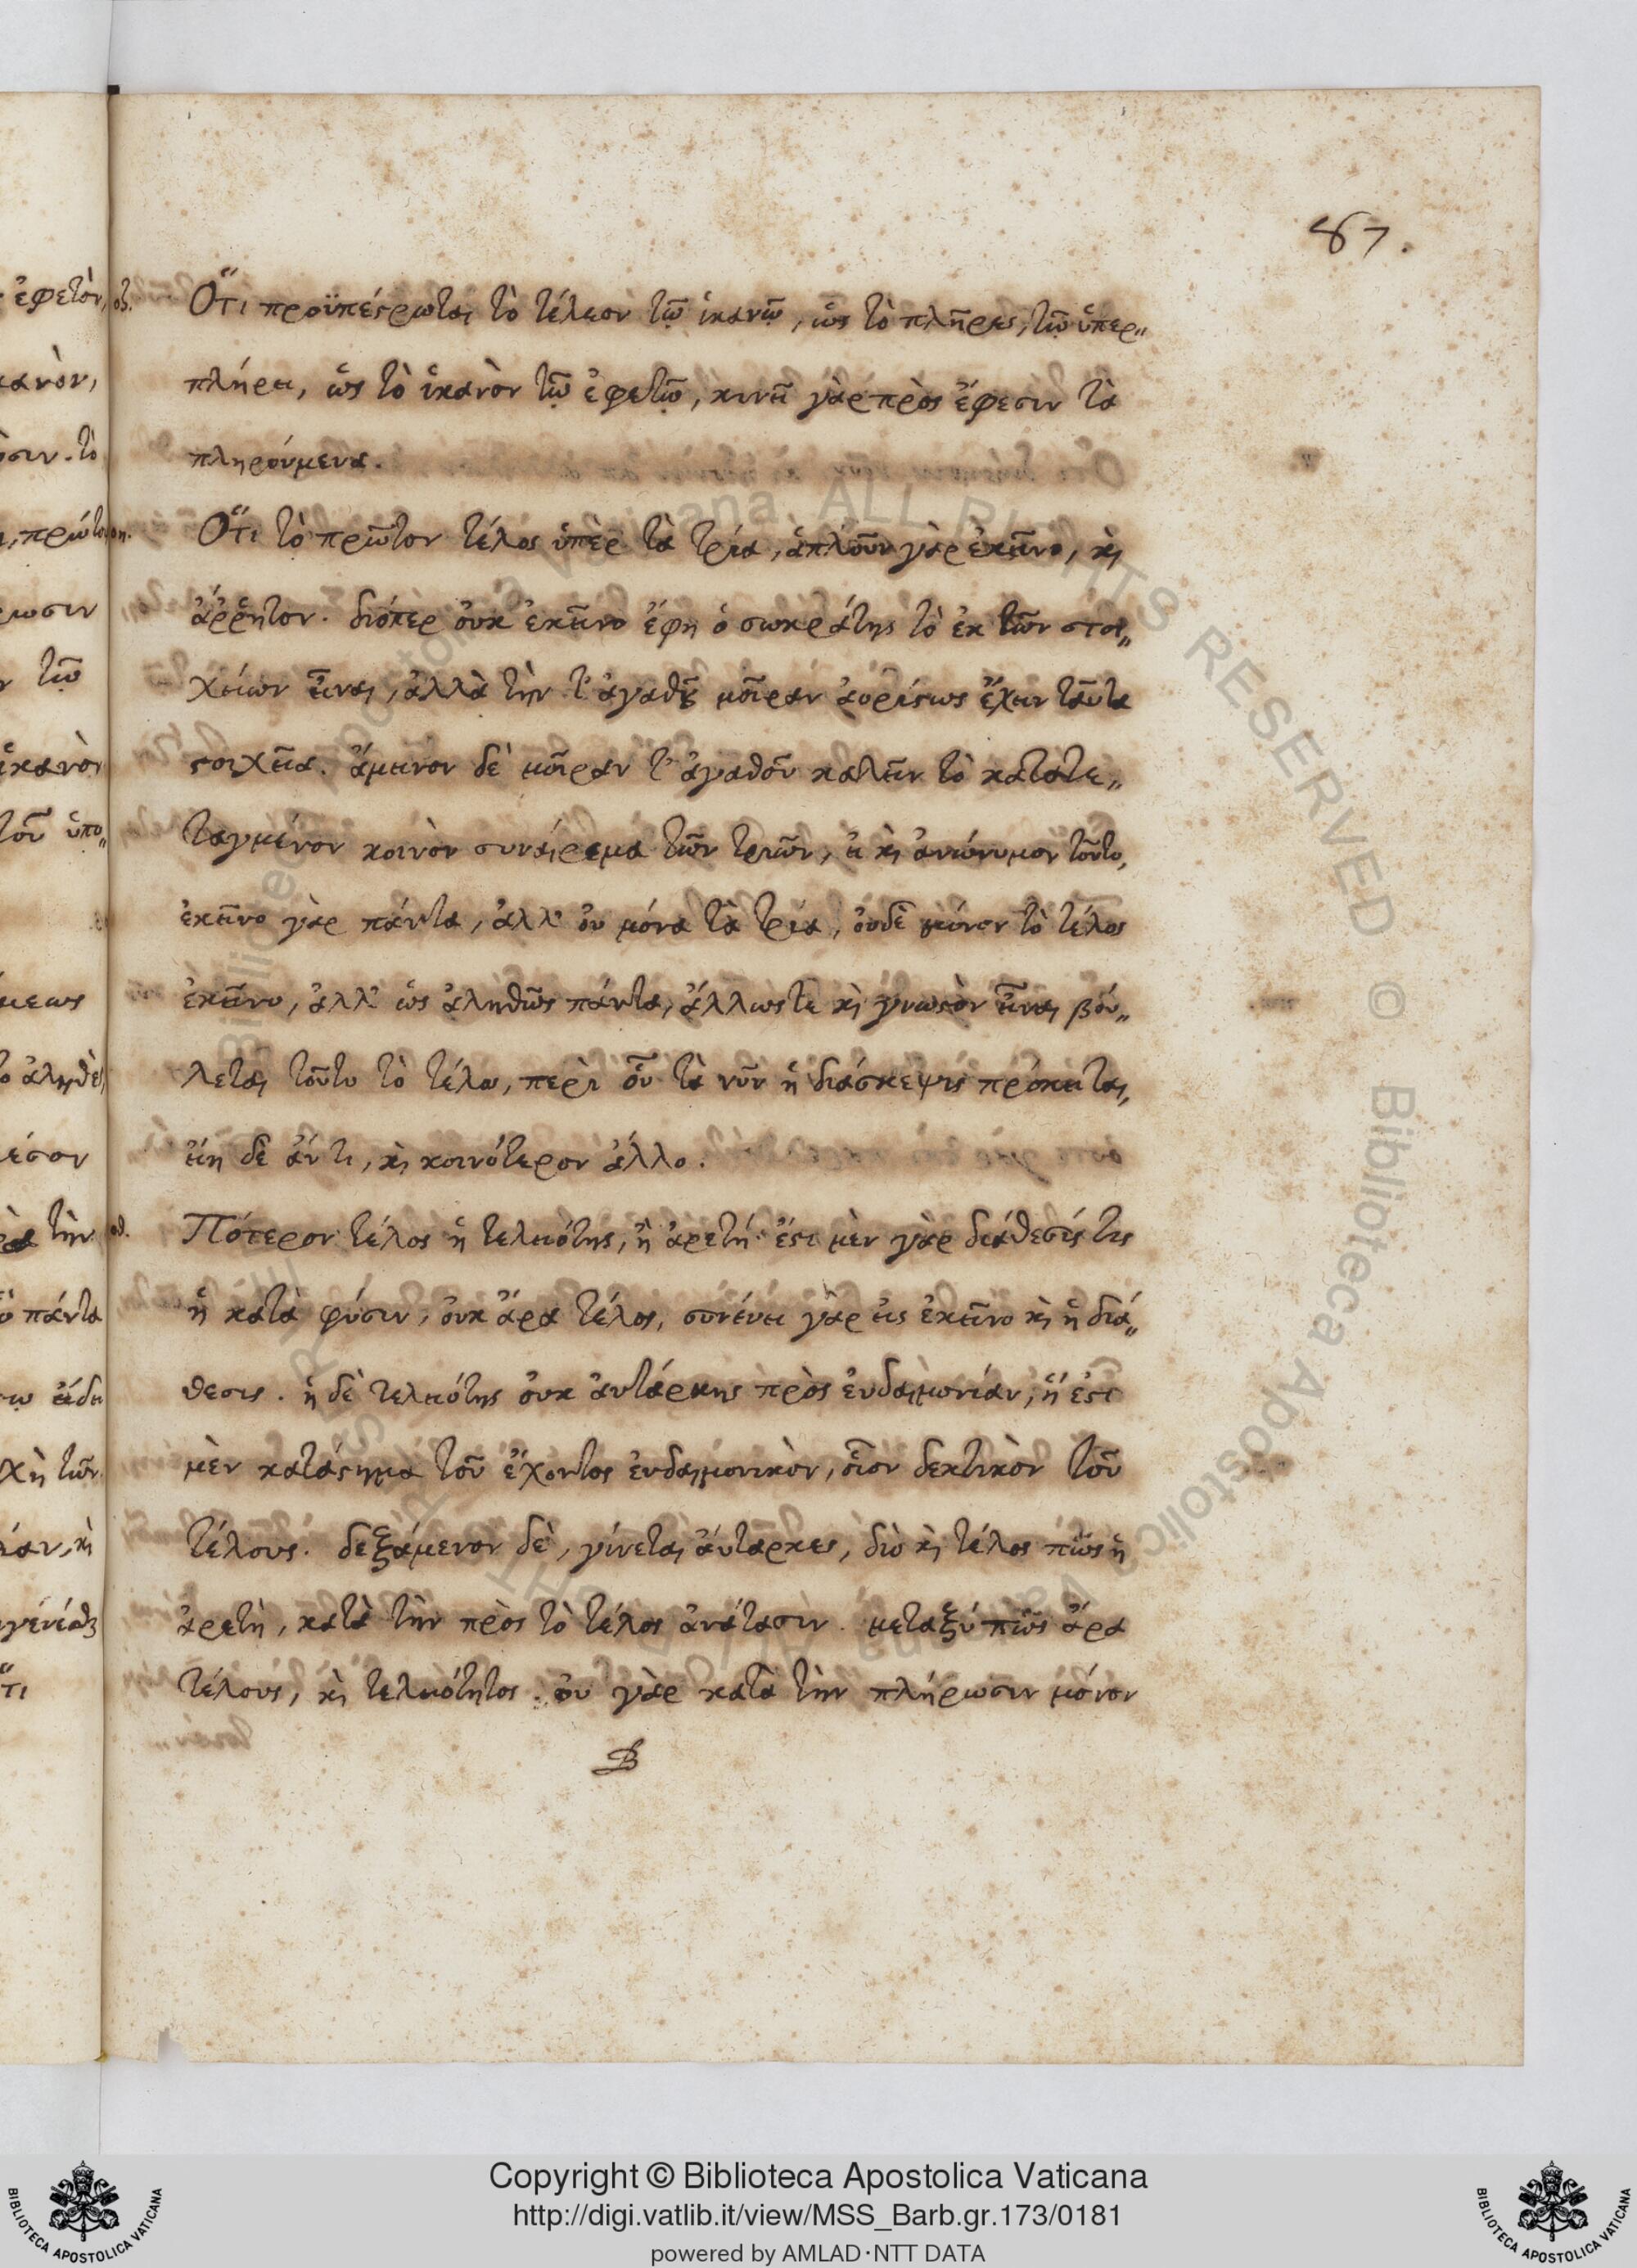 87.
οζ. Ὅτι προϋπέςρωται τὸ τέλεον τῶ ἱκανῶ, ὡς τὸ πλῆρες, τῶ ὑπερ„
πλήρει, ὡς τὸ ἱκανὸν τῶ ἐφετῶ, κινεῖ γὰρ πρὸς ἔφεσιν τὰ
πληρούμενα.
οη. Ὅτι τὸ πρῶτον τέλος ὑπὲρ τὰ τρία, ἁπλοῦν γὰρ ἐκεῖνο, κ̀
ἄῤῥητον. διόπερ οὐκ ἐκεῖνο ἔφη ὁ σωκράτης τὸ ἐκ τῶν στοι„
χείων εἶναι, ἀλλὰ τὴν τ' ἀγαθοῦ μοῖραν ἀορίςως ἔχειν ταῦτα
ςοιχεῖα. ἄμεινον δὲ μοῖραν τ' ἀγαθοῦ καλεῖν τὸ κατατε„
ταγμένον κοινὸν συναίρεμα τῶν τριῶν, εἰ κ̀ ἀνώνυμον τοῦτο,
ἐκεῖνο γὰρ πάντα, ἀλλ' οὐ μόνα τὰ τρία, οὐδὲ μόνον τὸ τέλος
ἐκεῖνο, ἀλλ' ὡς ἀληθῶς πάντα, ἄλλωςτε κ̀ γνωςὸν εἶναι βού„
λεται τοῦτο τὸ τέλος, περὶ οὗ τὰ νῦν ἡ διάσκεψις πρόκειται,
εἴη δὲ ἄν τι, κ̀ κοινότερον ἄλλο.
οθ. Πότερον τέλος ἡ τελειότης, ἢ ἀρετή· ἔςι μὲν γὰρ διάθεσίς τις
ἡ κατὰ φύσιν, οὐκ ἄρα τέλος, συνένει γὰρ εἰς ἐκεῖνο κ̀ ἡ διά„
θεσις. ἡ δὲ τελειότης οὐκ ἀυτάρκης πρὸς ἐυδαιμονίαν, ἢ ἔςι
μὲν κατάςημα τοῦ ἔχοντος ἐυδαιμονικὸν, οἷον δεκτικὸν τοῦ
τέλους. δεξάμενον δὲ, γίνεται ἄυταρκες, διὸ κ̀ τέλος πῶς ἡ
ἀρετὴ, κατὰ τὴν πρὸς τὸ τέλος ἀνάτασιν. μεταξύ πῶς ἄρα
τέλους, κ̀ τελειότητος. οὐ γὰρ κατὰ τὴν πλήρωσιν μόνον
B
Copyright © Biblioteca Apostolica Vaticana
http://digi.vatlib.it/view/MSS_Barb.gr.173/0181
powered by AMLAD·NTT DATA
BIBLIOTECA APOSTOLICA VATICANA
BIBLIOTECA APOSTOLICA VATICANA